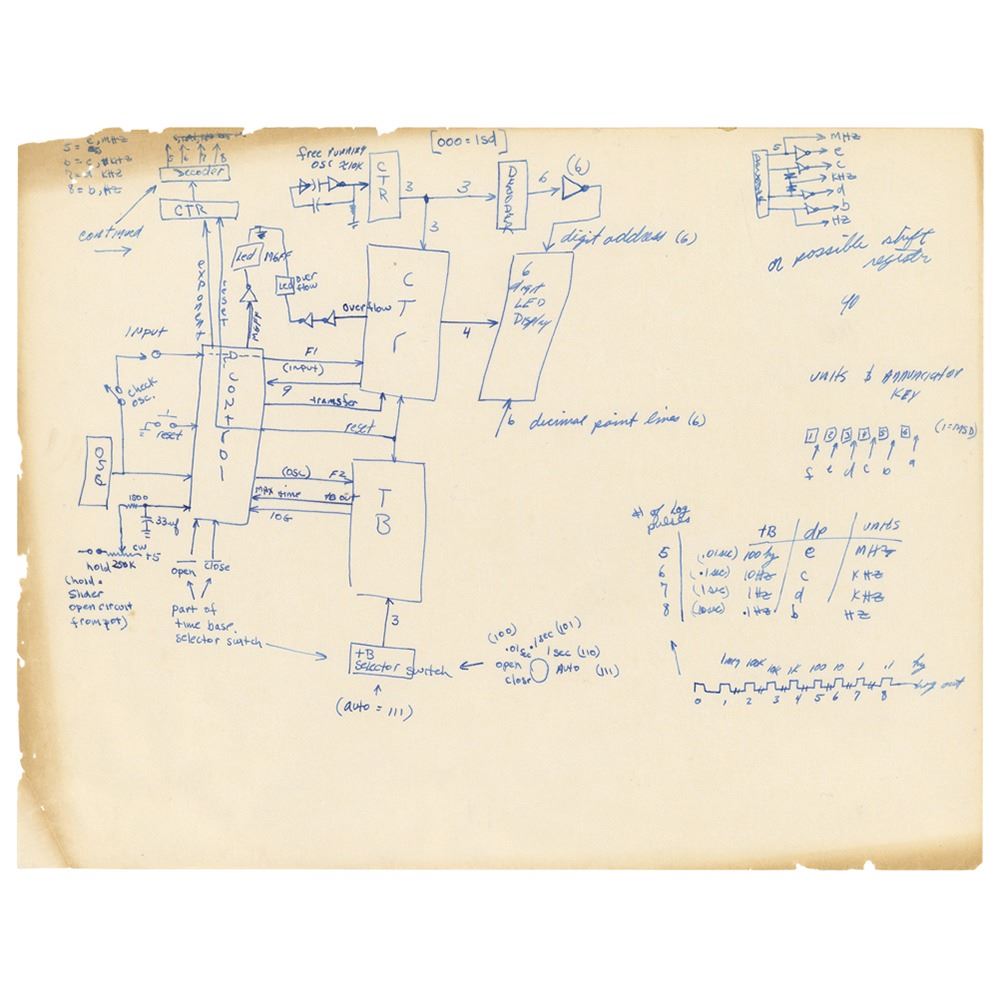 5 = e, MHz
6 = c, KHz
7 = d KHz
8 = b, HZ
5 6 7 8
Decoder
CTR
continued
exponent
reset
Led
MGFF
Led
over
flow
MGFF
free running
OSC ≈10K
CTR
3
3
3
[000 = 1sd]
6
(6)
digit address (6)
CTr
overflow
4
6
digit
LED
Display
6 decimal point lines (6)
5
MHz
e
c
KHz
d
b
HZ
or possible shift
register
Input
check
osc.
reset
OSC
1800
33uf
CW
+5
hold 250K
(hold =
slider
open circuit
from pot)
CONTrOl
F1
(input)
9
transfer
reset
(OSC) F2
MAX time
TB out
10G
TB
open
close
part of
time base.
selector switch
3
tB
selector switch
(auto = 111)
(100)
.01sec
.1sec (101)
1sec (110)
AUTO (111)
open
close
units & Annunciator
KEY
1 2 3 4 5 6
(1=MSD)
f e d c b a
# of Log
pulses
tB dp units
5 (.01sec) 100hz e MHz
6 (.1sec) 10HZ c KHZ
7 (1sec) 1HZ d KHZ
8 (10sec) .1HZ b HZ
1mg 100K 10K 1K 100 10 1 .1 hz
Log out
0 1 2 3 4 5 6 7 8